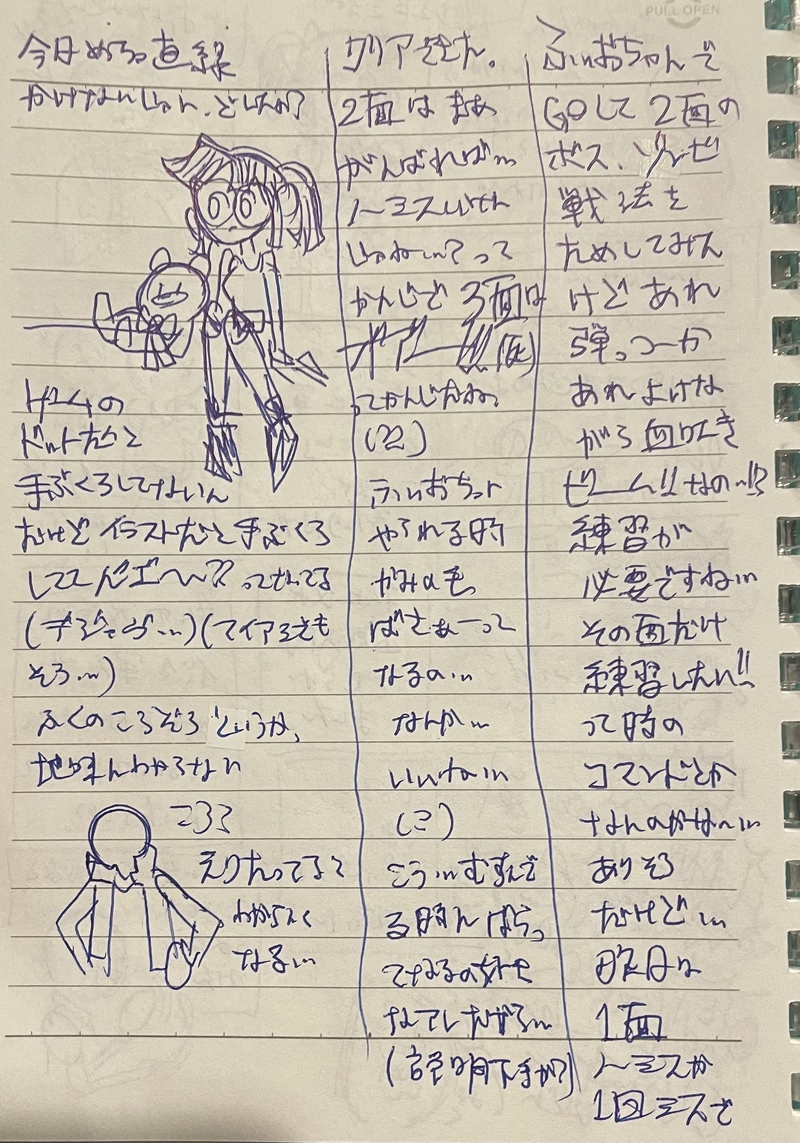 PULL OPEN
ふぃおちゃんで
GOして2面の
ボス、ゾンビ
戦法を
ためしてみた
けどあれ
弾っつーか
あれよけな
がら血吐き
ビーム!!なの…!?
練習が
必要ですね…
その面だけ
練習したい!!
って時の
コマンドとか
なんのがな〜…
ありそう
だけど…
昨日は
1面
ノーミスか
1回ミスで
クリアできた。
2面はまあ
がんばれば…
ノーミスいけん
じゃねぃ?って
かんじで3面は
(死)
ってかんじだね。
ふぃおちゃん
やられる時
かみの毛
ばさぁーって
なるの…
なんか…
いいね…
こう…むすんで
る時んばらっ
てなるの好き
なアレだから…
(説明下手か?)
今日めっちゃ直線
かけないじゃん、どした?
ゲームの
ドットだと
手ぶくろしてないん
だけどイラストだと手ぶくろ
してて んエ〜〜?ってなってる
(デジャヴ…)
そう…)
ふくのころそろというか、
地味にわからない
ころ
えりたってると
わからなく
なる…